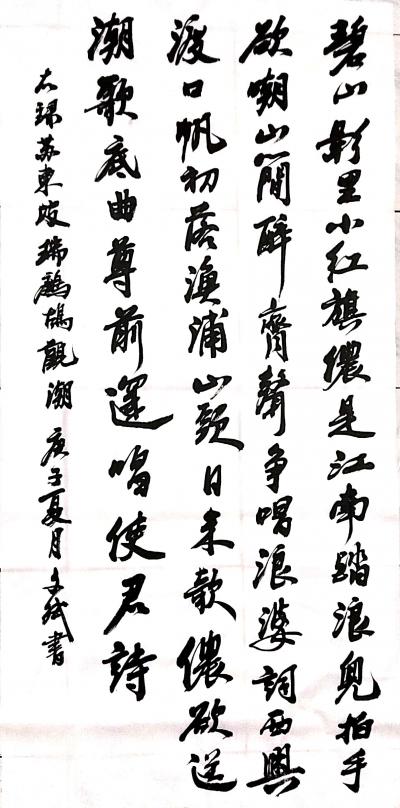 碧山影里小紅旗儂是江南踏浪兒拍手
欲嘲山簡醉齊聲争唱浪婆詞西興
渡口帆初落漁浦山頭日未欹儂欲送
潮歌底曲尊前還唱使君詩
右録蘇東坡瑞鷓鴣觀潮 庚子夏月文書